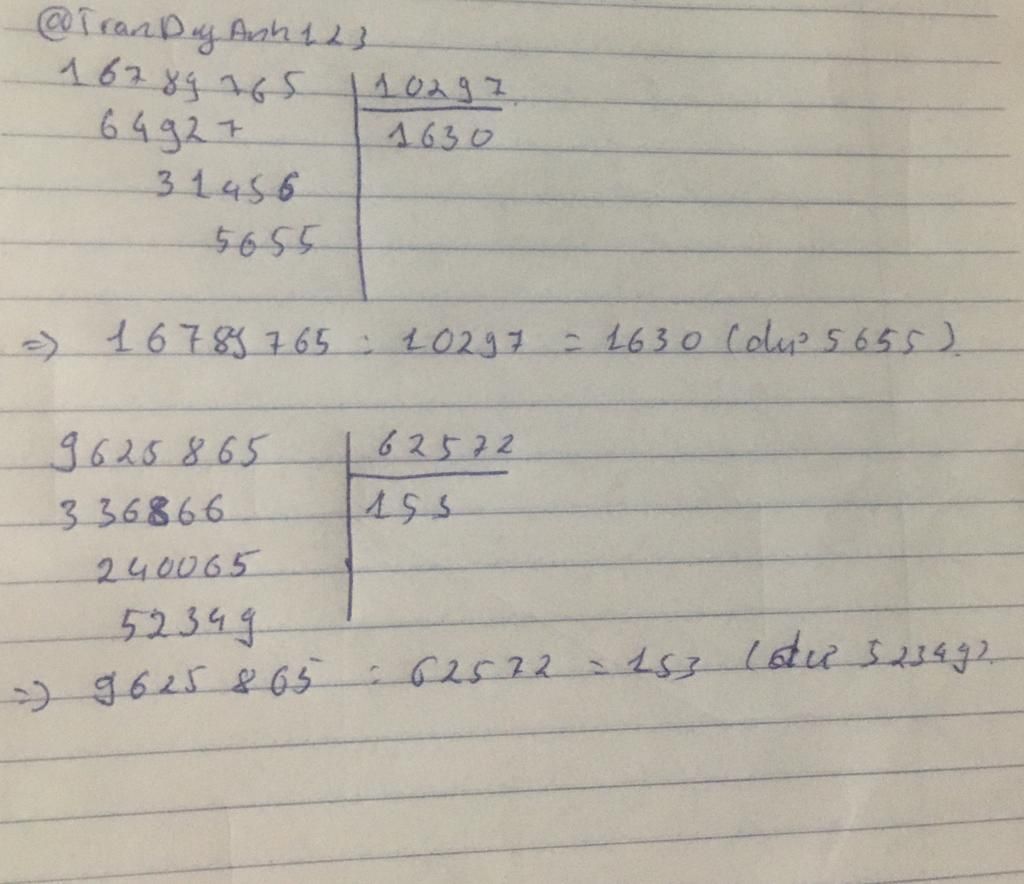 @TranDuyAnh123
16789765 10297
64927 1630
31456
5655
=> 16789765 : 10297 = 1630 (dư 5655).
9625865 62572
336866 153
240065
52349
=> 9625865 : 62572 = 153 (dư 52349).